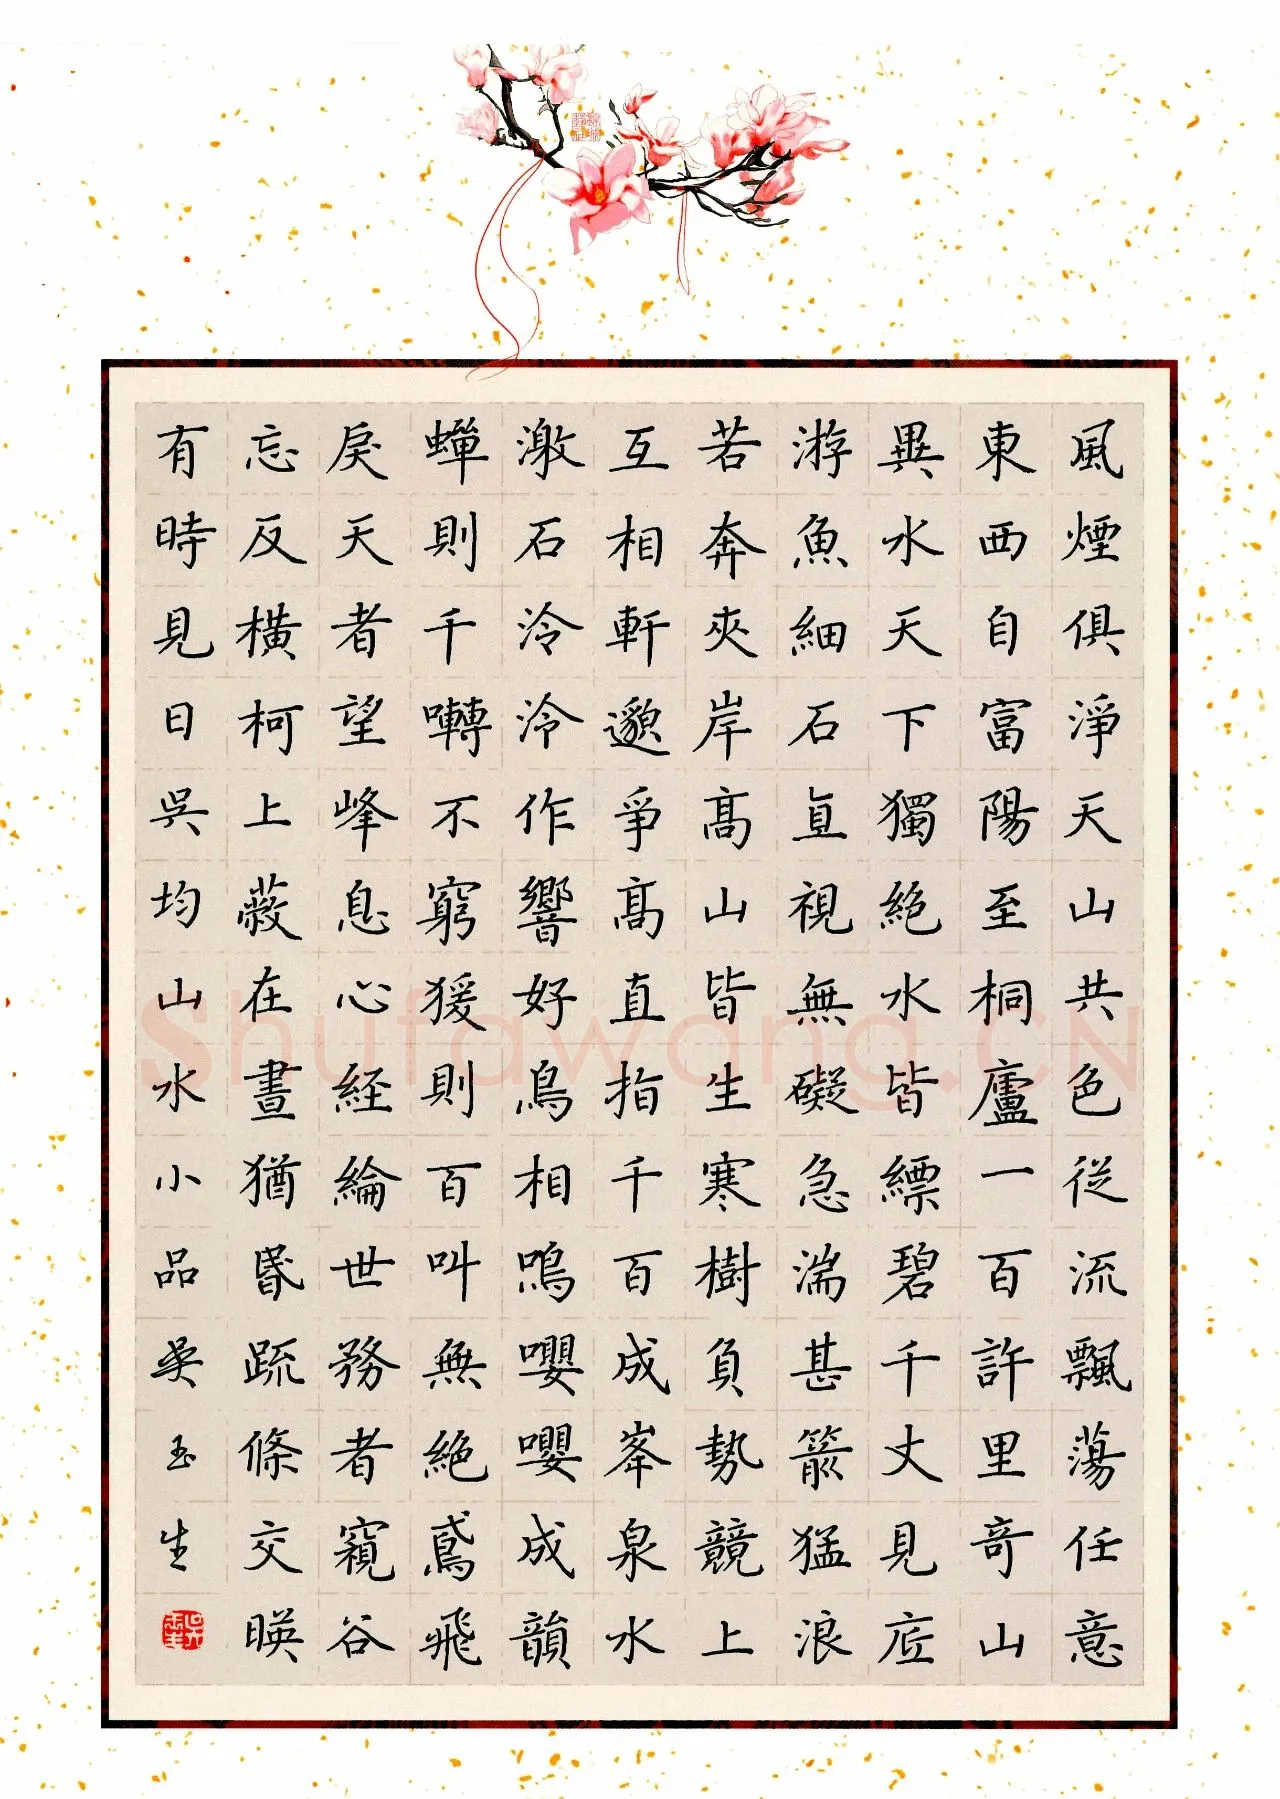 風煙俱淨天山共色從流飄蕩任意
東西自富陽至桐廬一百許里奇山
異水天下獨絕水皆縹碧千丈見底
游魚細石直視無礙急湍甚箭猛浪
若奔夾岸高山皆生寒樹負勢競上
互相軒邈爭高直指千百成峯泉水
激石泠泠作響好鳥相鳴嚶嚶成韻
蟬則千囀不窮猨則百叫無絕鳶飛
戾天者望峰息心経綸世務者窺谷
忘反橫柯上蔽在晝猶昬疏條交暎
有時見日吳均山水小品吳玉生
Shufawang.CN